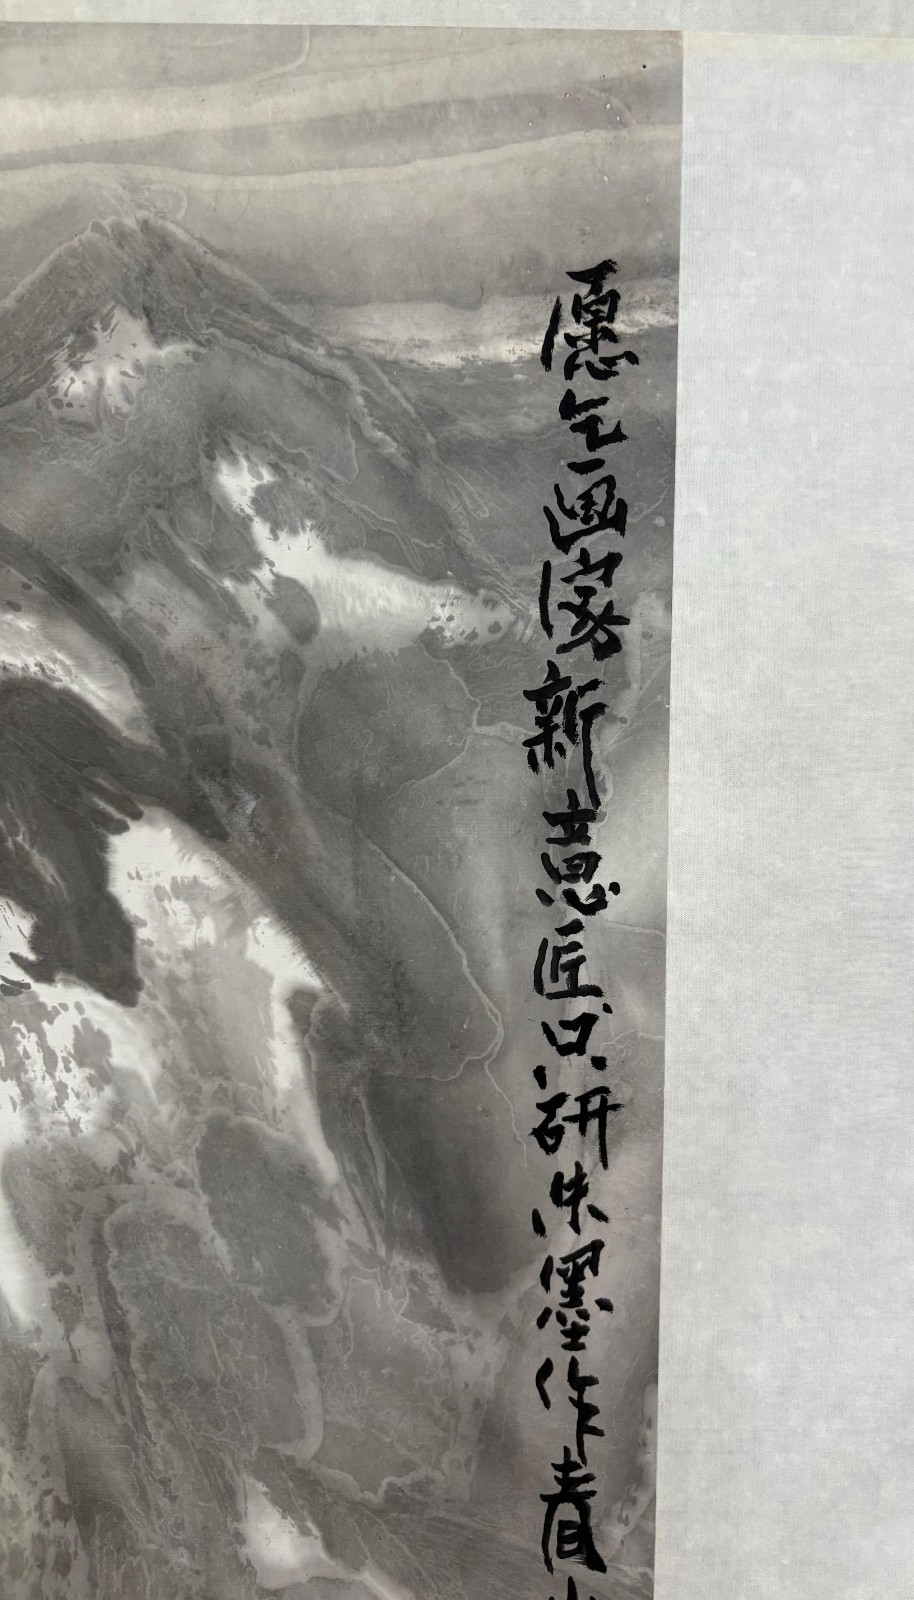 愿乞画家新意匠只研朱墨作春